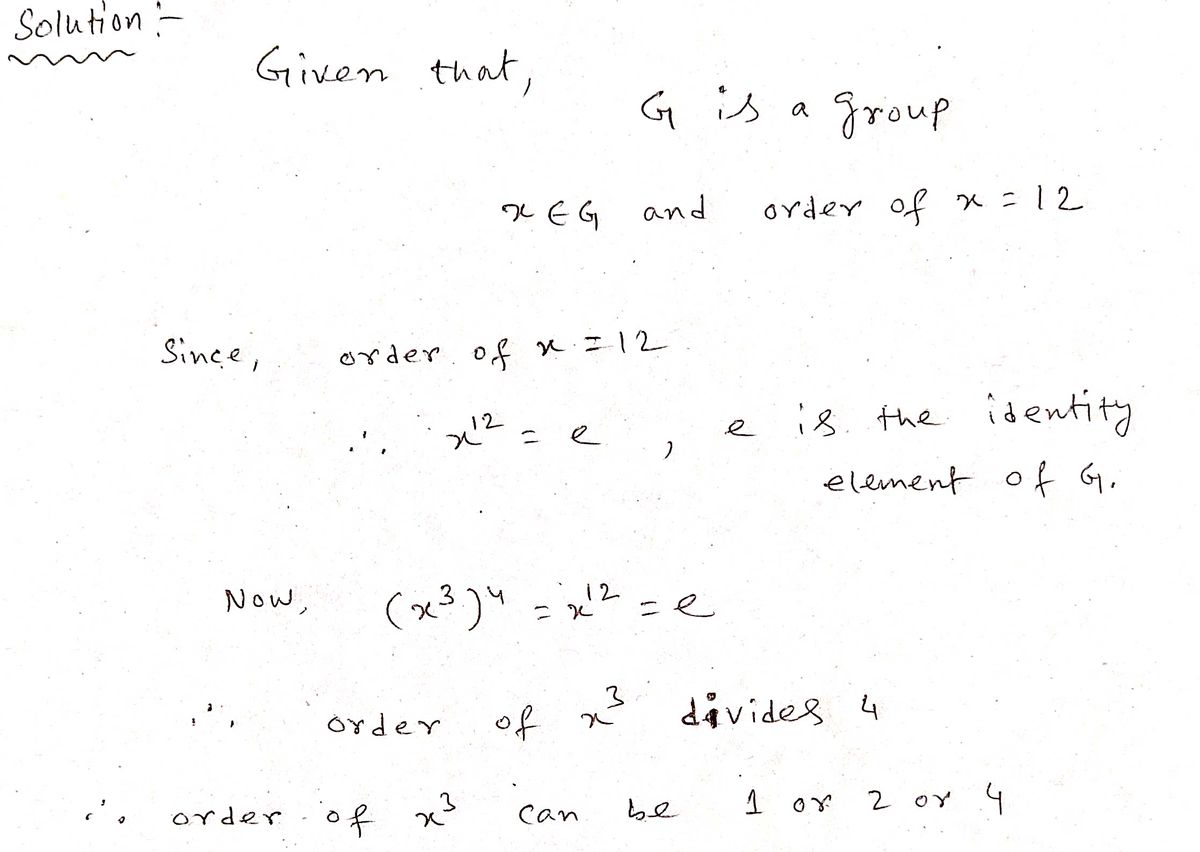 Solution :-
Given that,
G is a group
x ∈ G and order of x = 12
Since, order of x = 12
∴ x¹² = e , e is the identity
element of G.
Now, (x³)⁴ = x¹² = e
∴ order of x³ divides 4
∴ order of x³ can be 1 or 2 or 4